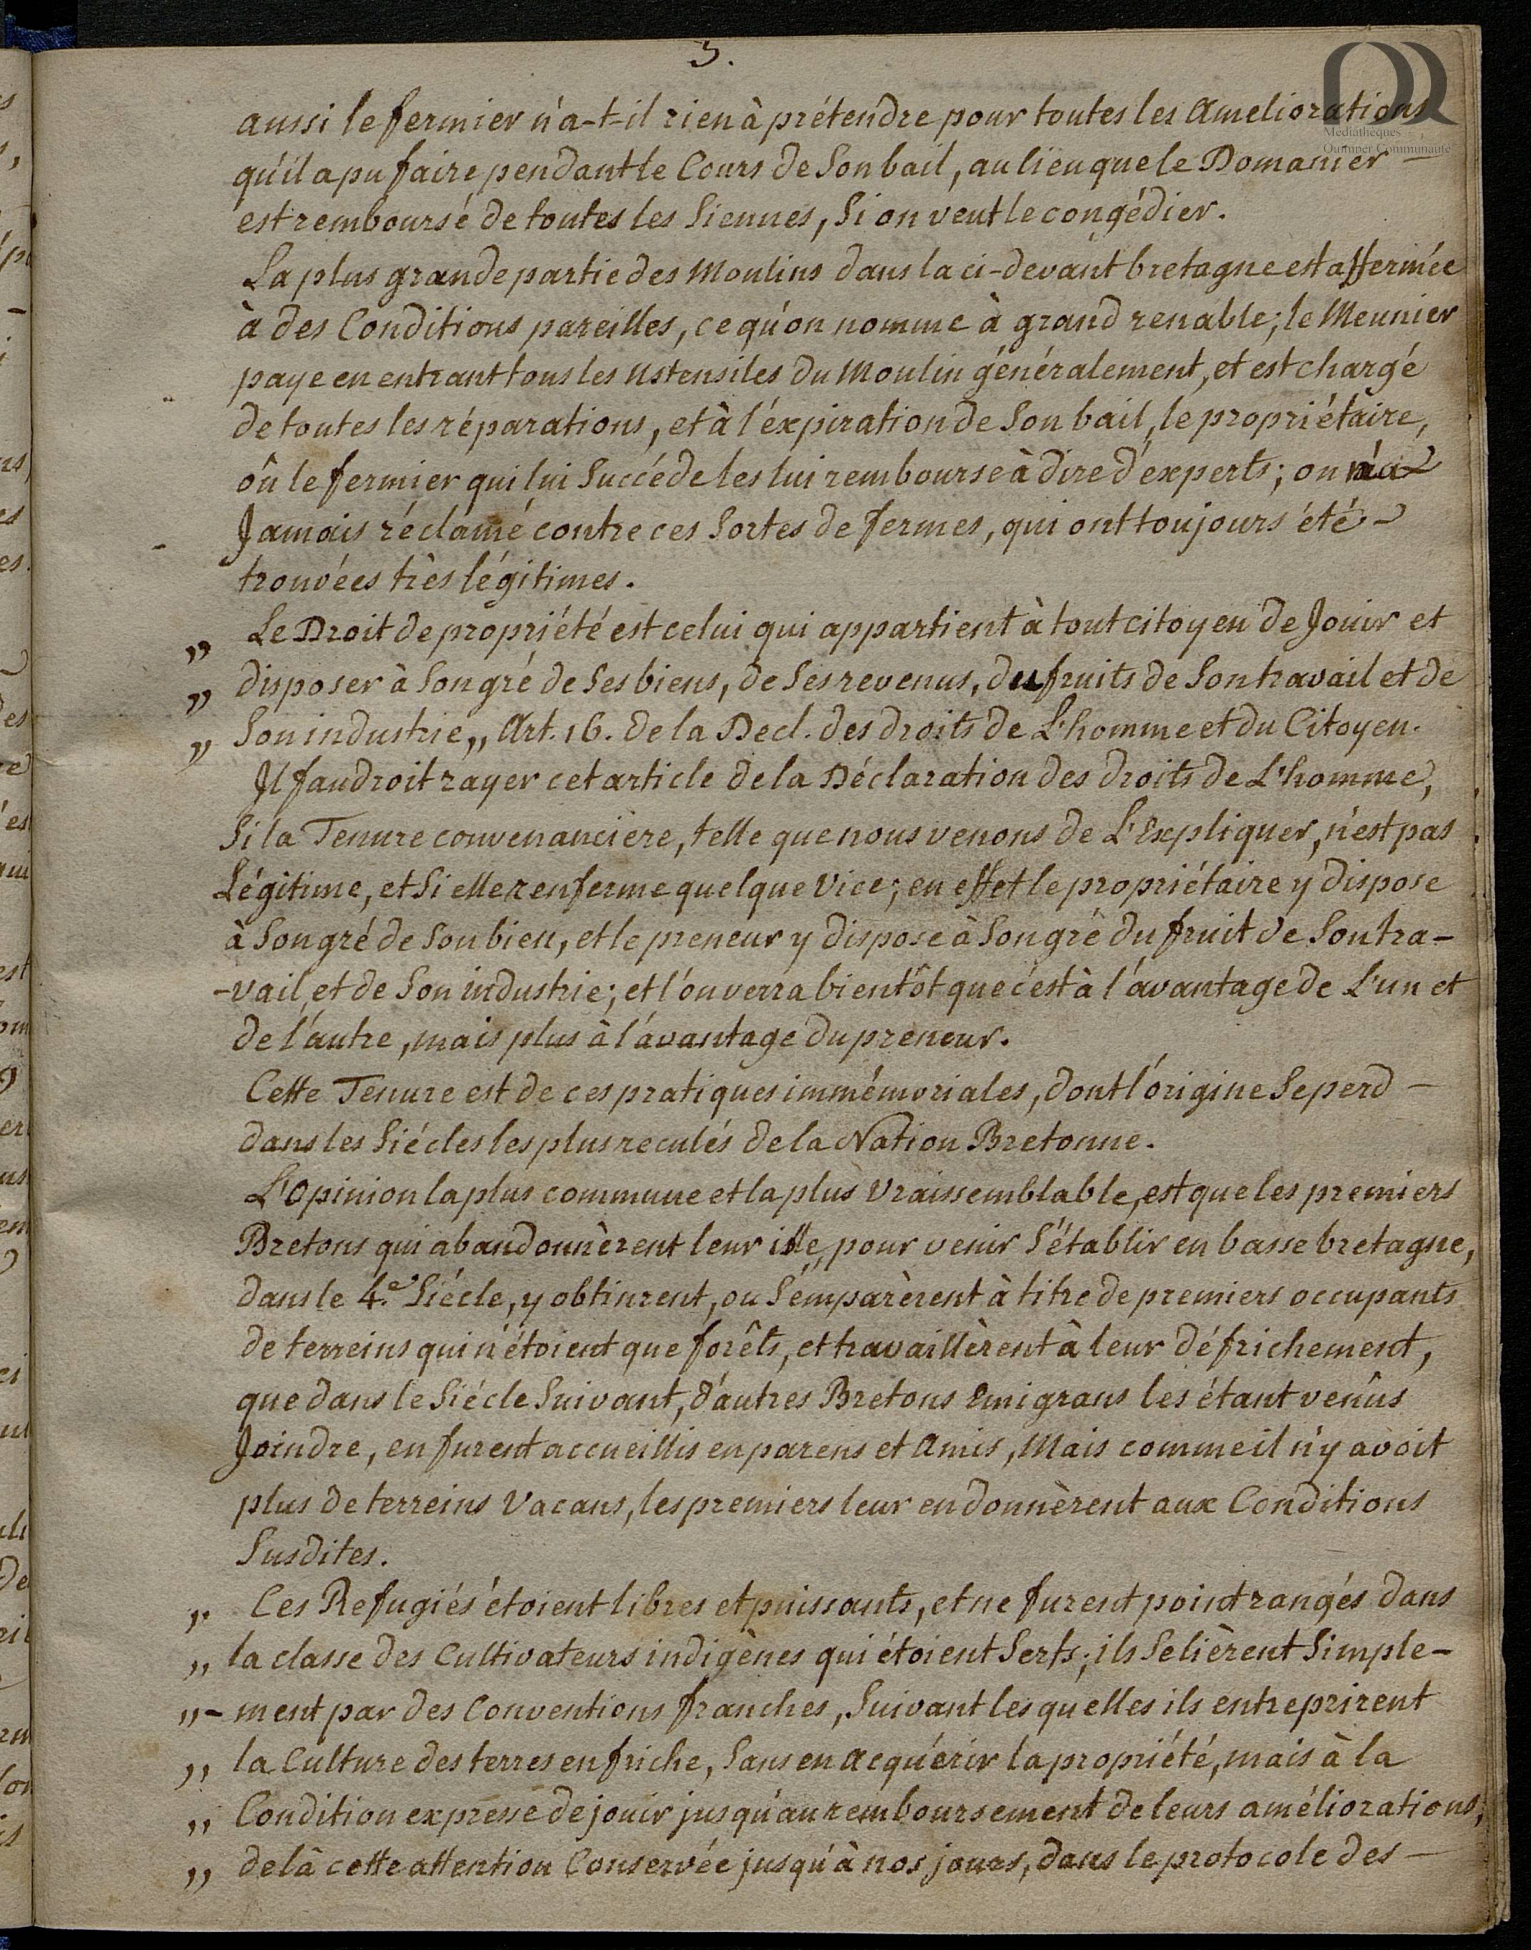 3.
aussi le fermier n'a-t-il rien à prétendre pour toutes les Ameliorations
Médiathèques
Quimper Communauté
qu'il a pu faire pendant le Cours de Son bail, au lieu que le Domanier –
est remboursé de toutes les Siennes, Si on veut le congédier.
La plus grande partie des Moulins dans la ci-devant bretagne est affermée
à des Conditions pareilles, ce qu'on nomme à grand renable; le Meunier
paye en entrant tous les Ustensiles du Moulin généralement, et est chargé
de toutes les réparations, et à l'éxpiration de Son bail, le propriétaire,
oû le fermier qui lui Succéde les lui rembourse à dire d'experts; on n'a
Jamais réclamé contre ces Sortes de fermes, qui ont toujours été –
trouvées très légitimes.
„ Le Droit de propriété est celui qui appartient à tout citoyen de Jouir et
„ disposer à Son gré de Ses biens, de Ses revenus, du fruits de Son travail et de
„ Son industrie„ Art. 16. de la Decl. des droits de L'homme et du Citoyen.
Il faudroit rayer cet article de la Déclaration des droits de L'homme,
Si la Tenure convenancière, telle que nous venons de L'Expliquer, n'est pas
Légitime, et Si elle renferme quelque Vice; en effet le propriétaire y dispose
à Son gré de Son bien, et le preneur y dispose à Son gré du fruit de Son tra-
-vail et de Son industrie; et l'on verra bientôt que c'est à l'avantage de L'un et
de l'autre, mais plus à l'avantage du preneur.
Cette Tenure est de ces pratiques immémoriales, dont l'origine Se perd –
dans les Siécles les plus reculés de la Nation Bretonne.
L'Opinion la plus commune et la plus Vraissemblable, est que les premiers
Bretons qui abandonnèrent leur isle, pour venir S'établir en basse bretagne,
dans le 4.e Siécle, y obtinrent, ou S'emparèrent à titre de premiers occupants
de terreins qui n'étoient que forêts, et travaillèrent à leur défrichement,
que dans le Siécle Suivant, d'autres Bretons Emigrans les étant venûs
Joindre, en furent accueillis en parens et Amis, Mais comme il n'y avoit
plus de terreins Vacans, les premiers leur en donnèrent aux Conditions
Susdites.
„ Ces Refugiés étoient libres et puissants, et ne furent point rangés dans
„ la classe des Cultivateurs indigènes qui étoient Serfs; ils Se lièrent Simple-
„- ment par des Conventions franches, Suivant les quelles ils entreprirent
„ la Culture des terres en friche, Sans en Acquérir la propriété, mais à la
„ Condition expresse de jouir jusqu'au remboursement de leurs améliorations;
„ delà cette attention Conservée jusqu'à nos jours, dans le protocole des –